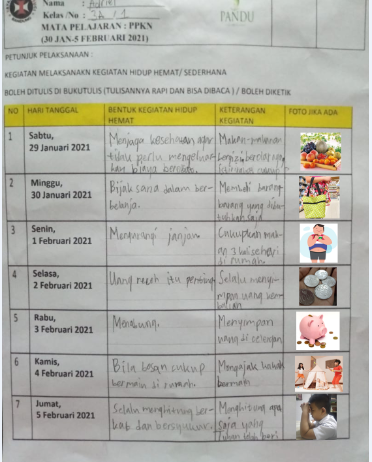 Nama : Adriel
Kelas /No : 3A / 1
MATA PELAJARAN : PPKN
(30 JAN-5 FEBRUARI 2021)
PANDU
PETUNJUK PELAKSANAAN :
KEGIATAN MELAKSANAKN KEGIATAN HIDUP HEMAT/ SEDERHANA
BOLEH DITULIS DI BUKUTULIS (TULISANNYA RAPI DAN BISA DIBACA) / BOLEH DIKETIK
NO HARI TANGGAL BENTUK KEGIATAN HIDUP HEMAT KETERANGAN KEGIATAN FOTO JIKA ADA
1 Sabtu,
29 Januari 2021
Menjaga kesehatan agar
tidak perlu mengeluar-
kan biaya berobat.
Makan-makanan
bergizi
2 Minggu,
30 Januari 2021
Bijaksana dalam ber-
belanja.
Membeli barang-
barang yang dibu-
tuhkan saja
3 Senin,
1 Februari 2021
Mengurangi jajan.
Cukupkan mak-
an 3 kali sehari
di rumah.
4 Selasa,
2 Februari 2021
Uang receh itu penting
Selalu menyim-
pan uang
5 Rabu,
3 Februari 2021
Menabung.
Menyimpan
uang di celengan
6 Kamis,
4 Februari 2021
Bila bosan cukup
bermain di rumah.
Mengajak kakak
bermain
7 Jumat,
5 Februari 2021
Selalu menghitung ber-
kat dan bersyukur.
Menghitung apa
saja yang
Tuhan